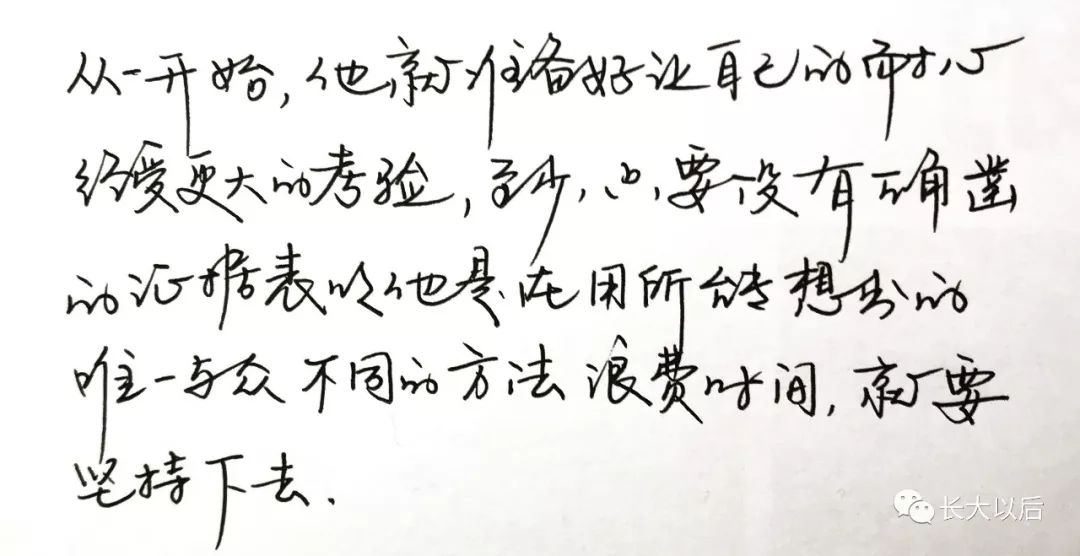 从一开始，他就准备好让自己的耐心
经受更大的考验，至少，只要没有确凿
的证据表明他是在用所能想出的
唯一与众不同的方法浪费时间，就要
坚持下去．
长大以后